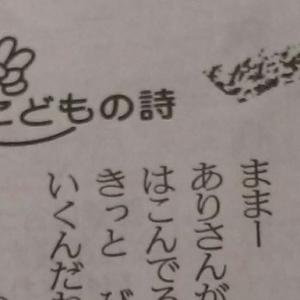 こどもの詩
ままー
ありさんが
はこんでる
きっと
いくんだ